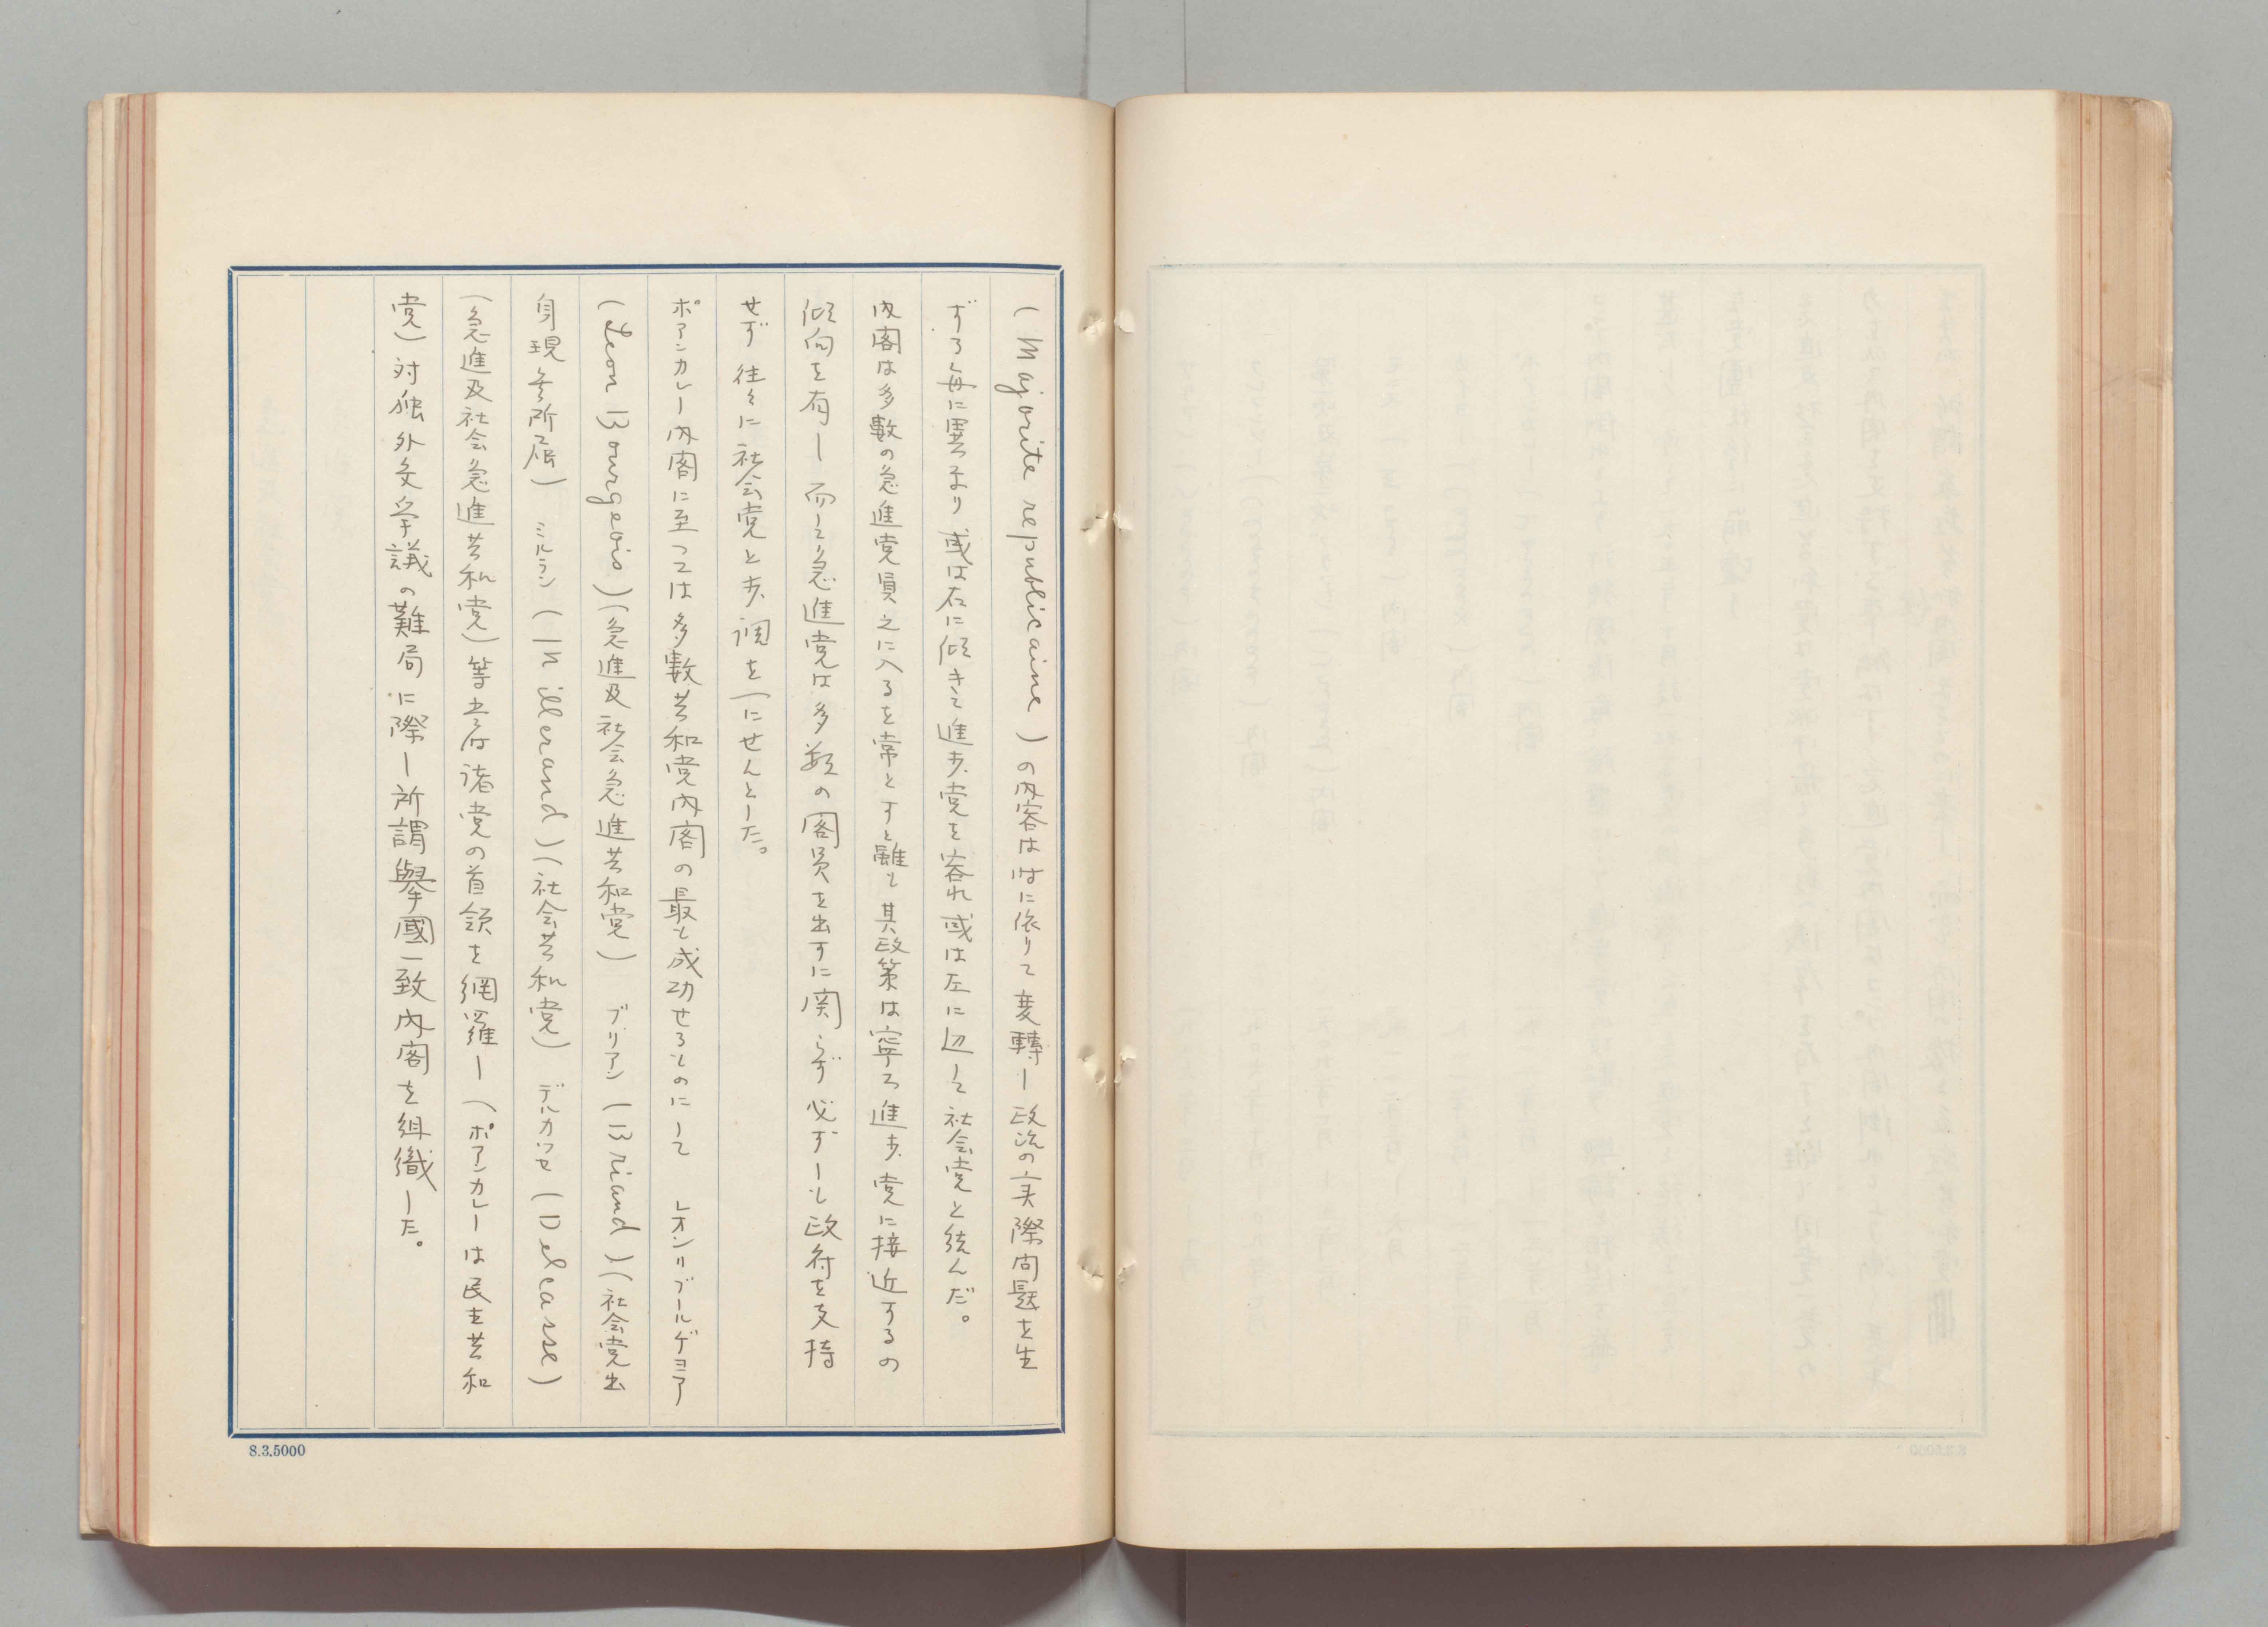 (Majorite republicaine)の内容は時に依りて変轉し政治の実際問題を生
ずる毎に異なり或は右に傾きて進歩党を容れ或は左に辺して社会党と結んだ。
内閣は多数の急進党員之に入るを常とすと雖も其政策は寧ろ進歩党に接近するの
傾向を有し而して急進党は多数の閣員を出すに関らず必ずしも政府を支持
せず往々に社会党と歩調を一にせんとした。
ポアンカレー内閣に至つては多數共和党内閣の最も成功せるものにして レオンリブールゲヨア
(Leon Bourgeois)(急進及社会急進共和党) ブリアン(Briand)(社会党出
身現無所属) ミルラン(Millerand)(社会共和党) デルカツセ(Delcasse)
(急進及社会急進共和党)等は諸党の首領を網羅し(ポアンカレーは民主共和
党)対独外交争議の難局に際し所謂舉國一致内閣を組織した。
8.3.5000